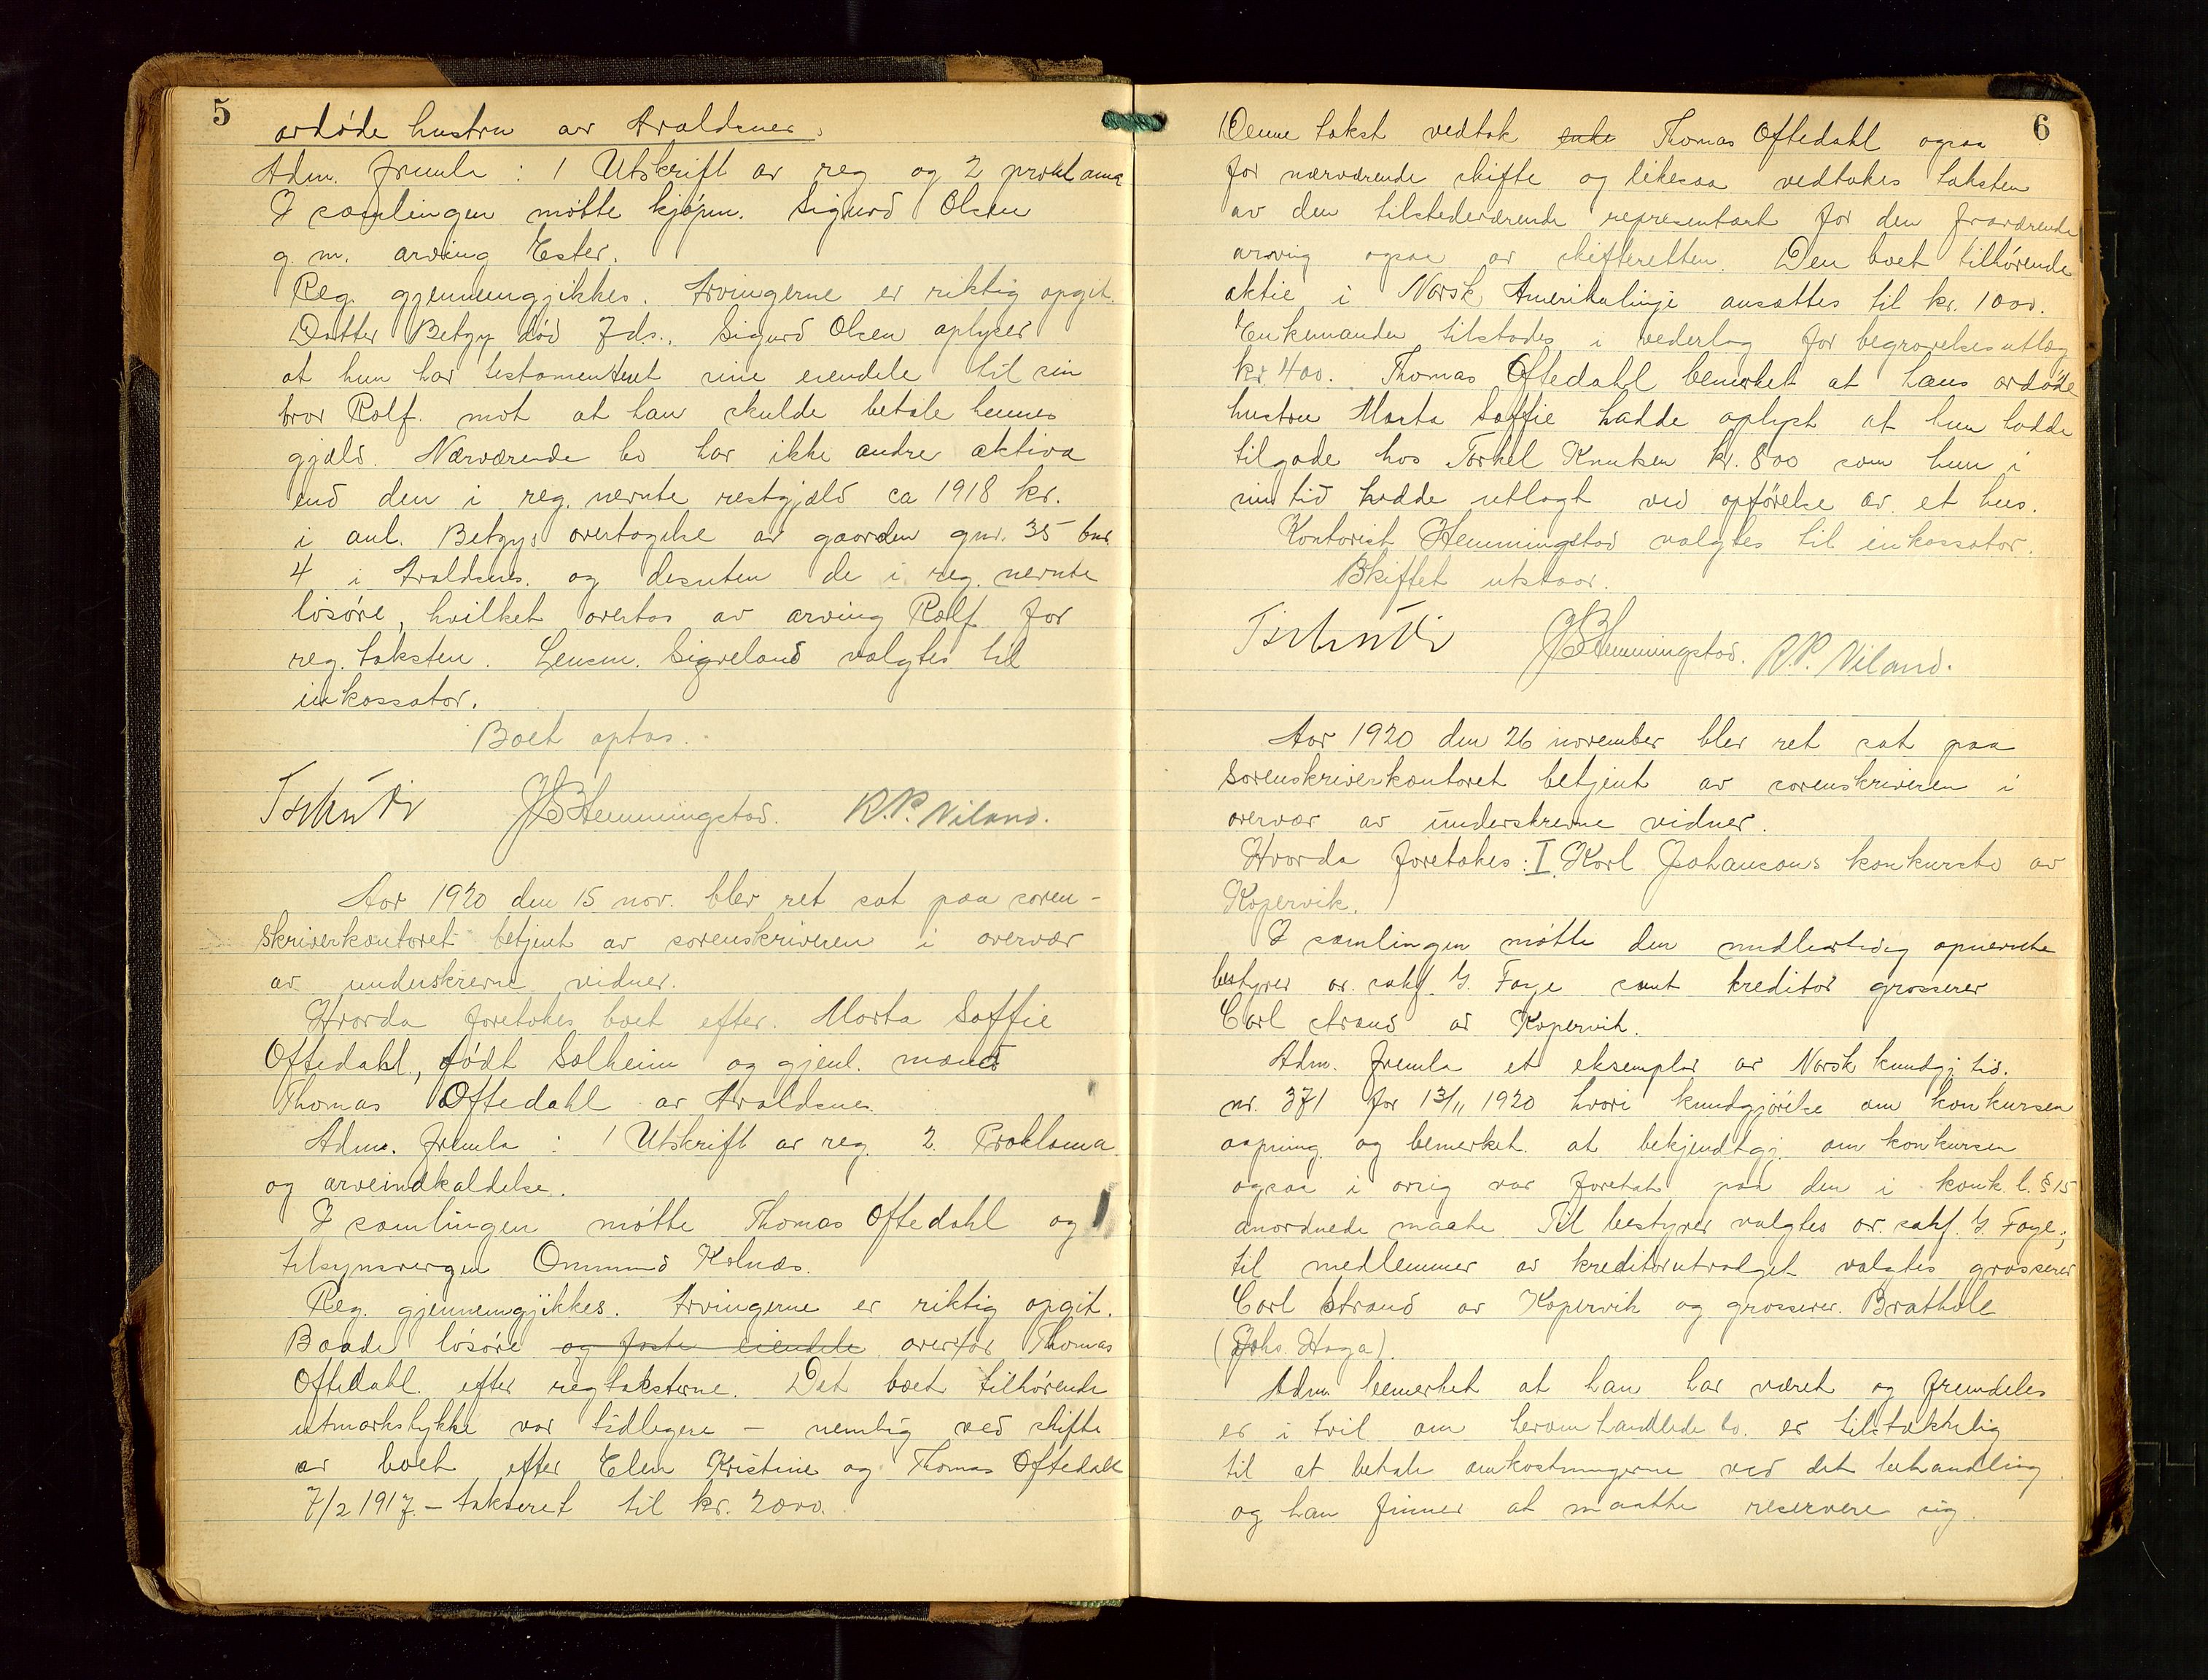 5
avdøde hustru av Avaldsnes.
Adm. fremla : 1 Utskrift av reg og 2 proklama
I samlingen møtte kjøpm. Sigurd Olsen
g. m. arving Ester.
Reg. gjennemgikkes. Arvingerne er riktig opgit.
Datter Betzy død 7ds.. Sigurd Olsen oplyser
at hun har testamentert sine eiendele til sin
bror Rolf. mot at han skulde betale hennes
gjæld. Nærværende bo har ikke andre aktiva
end den i reg. nevnte restgjæld ca 1918 kr.
i anl. Betzys overtagelse av gaarden gnr. 35 bnr.
4 i Avaldsnes. og desuten de i reg. nevnte
løsøre, hvilket overtas av arving Rolf for
reg. taksten. Lensm. Sigveland valgtes til
inkassator.
Boet optas.
JBHemmingstad. R.P. Viland.
Aar 1920 den 15 nov. blev ret sat paa soren-
skriverkontoret betjent av sorenskriveren i overvær
av underskrevne vidner.
Hvorda foretokes boet efter. Marta Soffie
Oftedahl., født Solheim og gjenl. mand
Thomas Oftedahl av Avaldsnes.
Adm. fremla : 1 Utskrift av reg. 2. Proklama
og arveindkaldelse.
I samlingen møtte Thomas Oftedahl og
tilsynsvergen Ommund Kolnæs.
Reg. gjennemgjikkes. Arvingerne er riktig opgit.
Baade løsøre og faste eiendele overtar Thomas
Oftedahl. efter regtaksterne. Det boet tilhørende
utmarkstykke var tidligere – nemlig ved skifte
av boet efter Elen Kristine og Thomas Oftedahl
7/2 1917. – taksert til kr. 2000.
6
Denne takst vedtok enke Thomas Oftedahl ogsaa
for nærværende skifte og likesaa vedtokes taksten
av den tilstedeværende representant for den fraværende
arving ogsaa av skifteretten. Den boet tilhørende
aktie i Norsk Amerikalinje ansattes til kr. 1000.
Enkemanden tilstodes i vederlag for begravelsesutlæg
kr. 400. Thomas Oftedahl bemerket at hans avdøde
hustru Marta Soffie hadde oplyst at hun hadde
tilgode hos Torkel Knutsen kr. 800 som hun i
sin tid hadde utlagt ved opførelse av et hus.
Kontorist Hemmingstad valgtes til inkassator.
Skiftet utstaar.
JBHemmingstad. R.P. Viland.
Aar 1920 den 26 november blev ret sat paa
sorenskriverkontoret betjent av sorenskriveren i
overvær av underskrevne vidner.
Hvorda foretokes : I Karl Johansons konkursbo av
Kopervik.
I samlingen møtte den midlertidig opnevnte
bestyrer o.r. sakf. Y. Faye samt kreditor grosserer
Carl Strand av Kopervik.
Adm. fremla et eksemplar av Norsk kundgj tid.
nr. 371 for 13/11 1920 hvori kundgjørelse om konkursen
aapning og bemerket at bekjendtgj. om konkursen
ogsaa i øvrig var foretat paa den i konk. l. § 15
anordnede maate. Til bestyrer valgtes o.r. sakf. Y. Faye;
til medlemmer av kreditorutvalget valgtes grosserer
Carl Strand av Kopervik og grosserer. Brathole
(Johs. Haga).
Adm. bemerket at han har været og fremdeles
er i tvil om heromhandlede bo. er tilstrækkelig
til at betale omkostningerne ved det behandling
og han finner at maatte reservere sig.